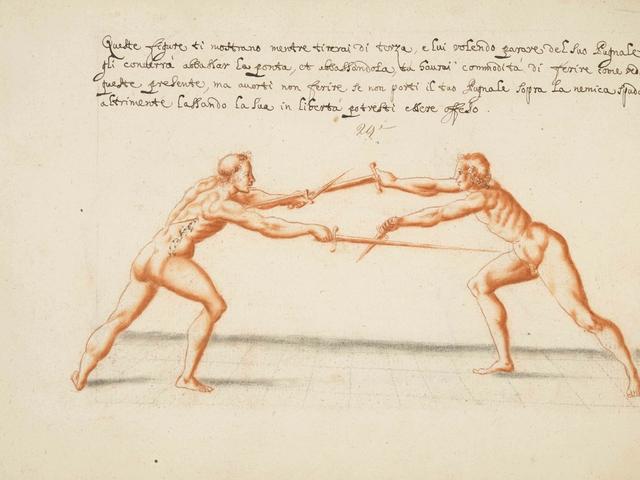 Queste figure ti mostrano mentre tirerai di terza, e lui volendo parare del suo Pugnale
gli converrà abbassar la ponta, et abbassandola tu havrai commodità di ferire come
queste presente, ma averti non ferire se non porti il tuo Pugnale sopra la nemica spada
altrimente lassando la sua in libertà potresti essere offeso.